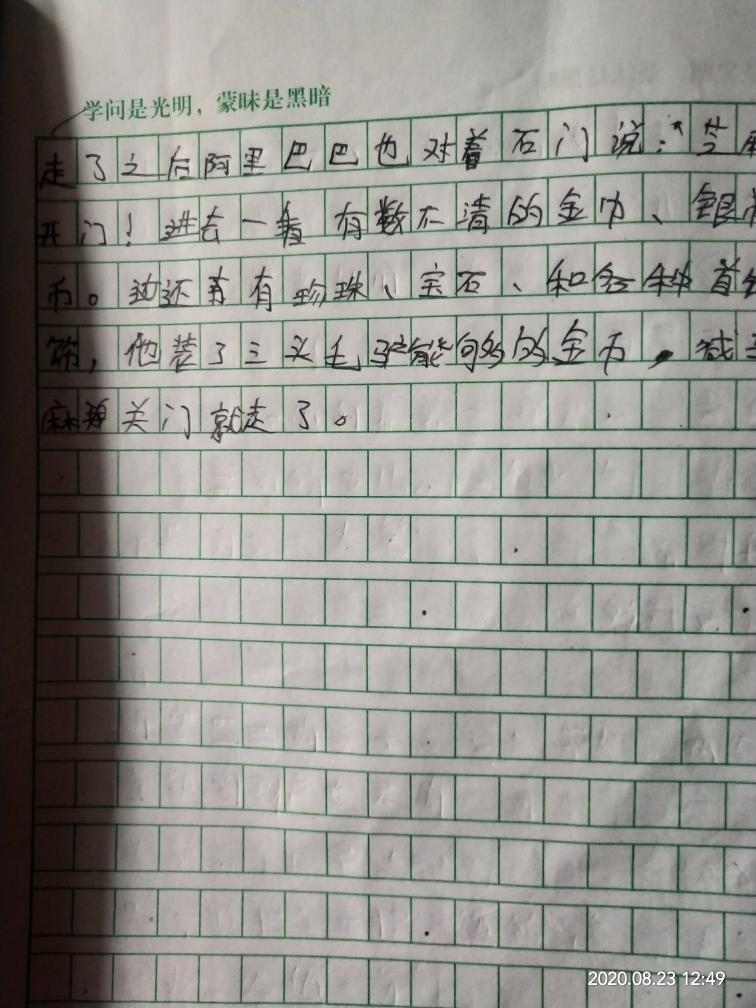 学问是光明，蒙昧是黑暗
走了之后阿里巴巴也对着石门说："芝
开门！进去一看有数不清的金巾、银
币。还有珍珠、宝石、和各种首
饰，他装了三头毛驴能够的金币，
麻 关门就走了。
2020.08.23 12:49